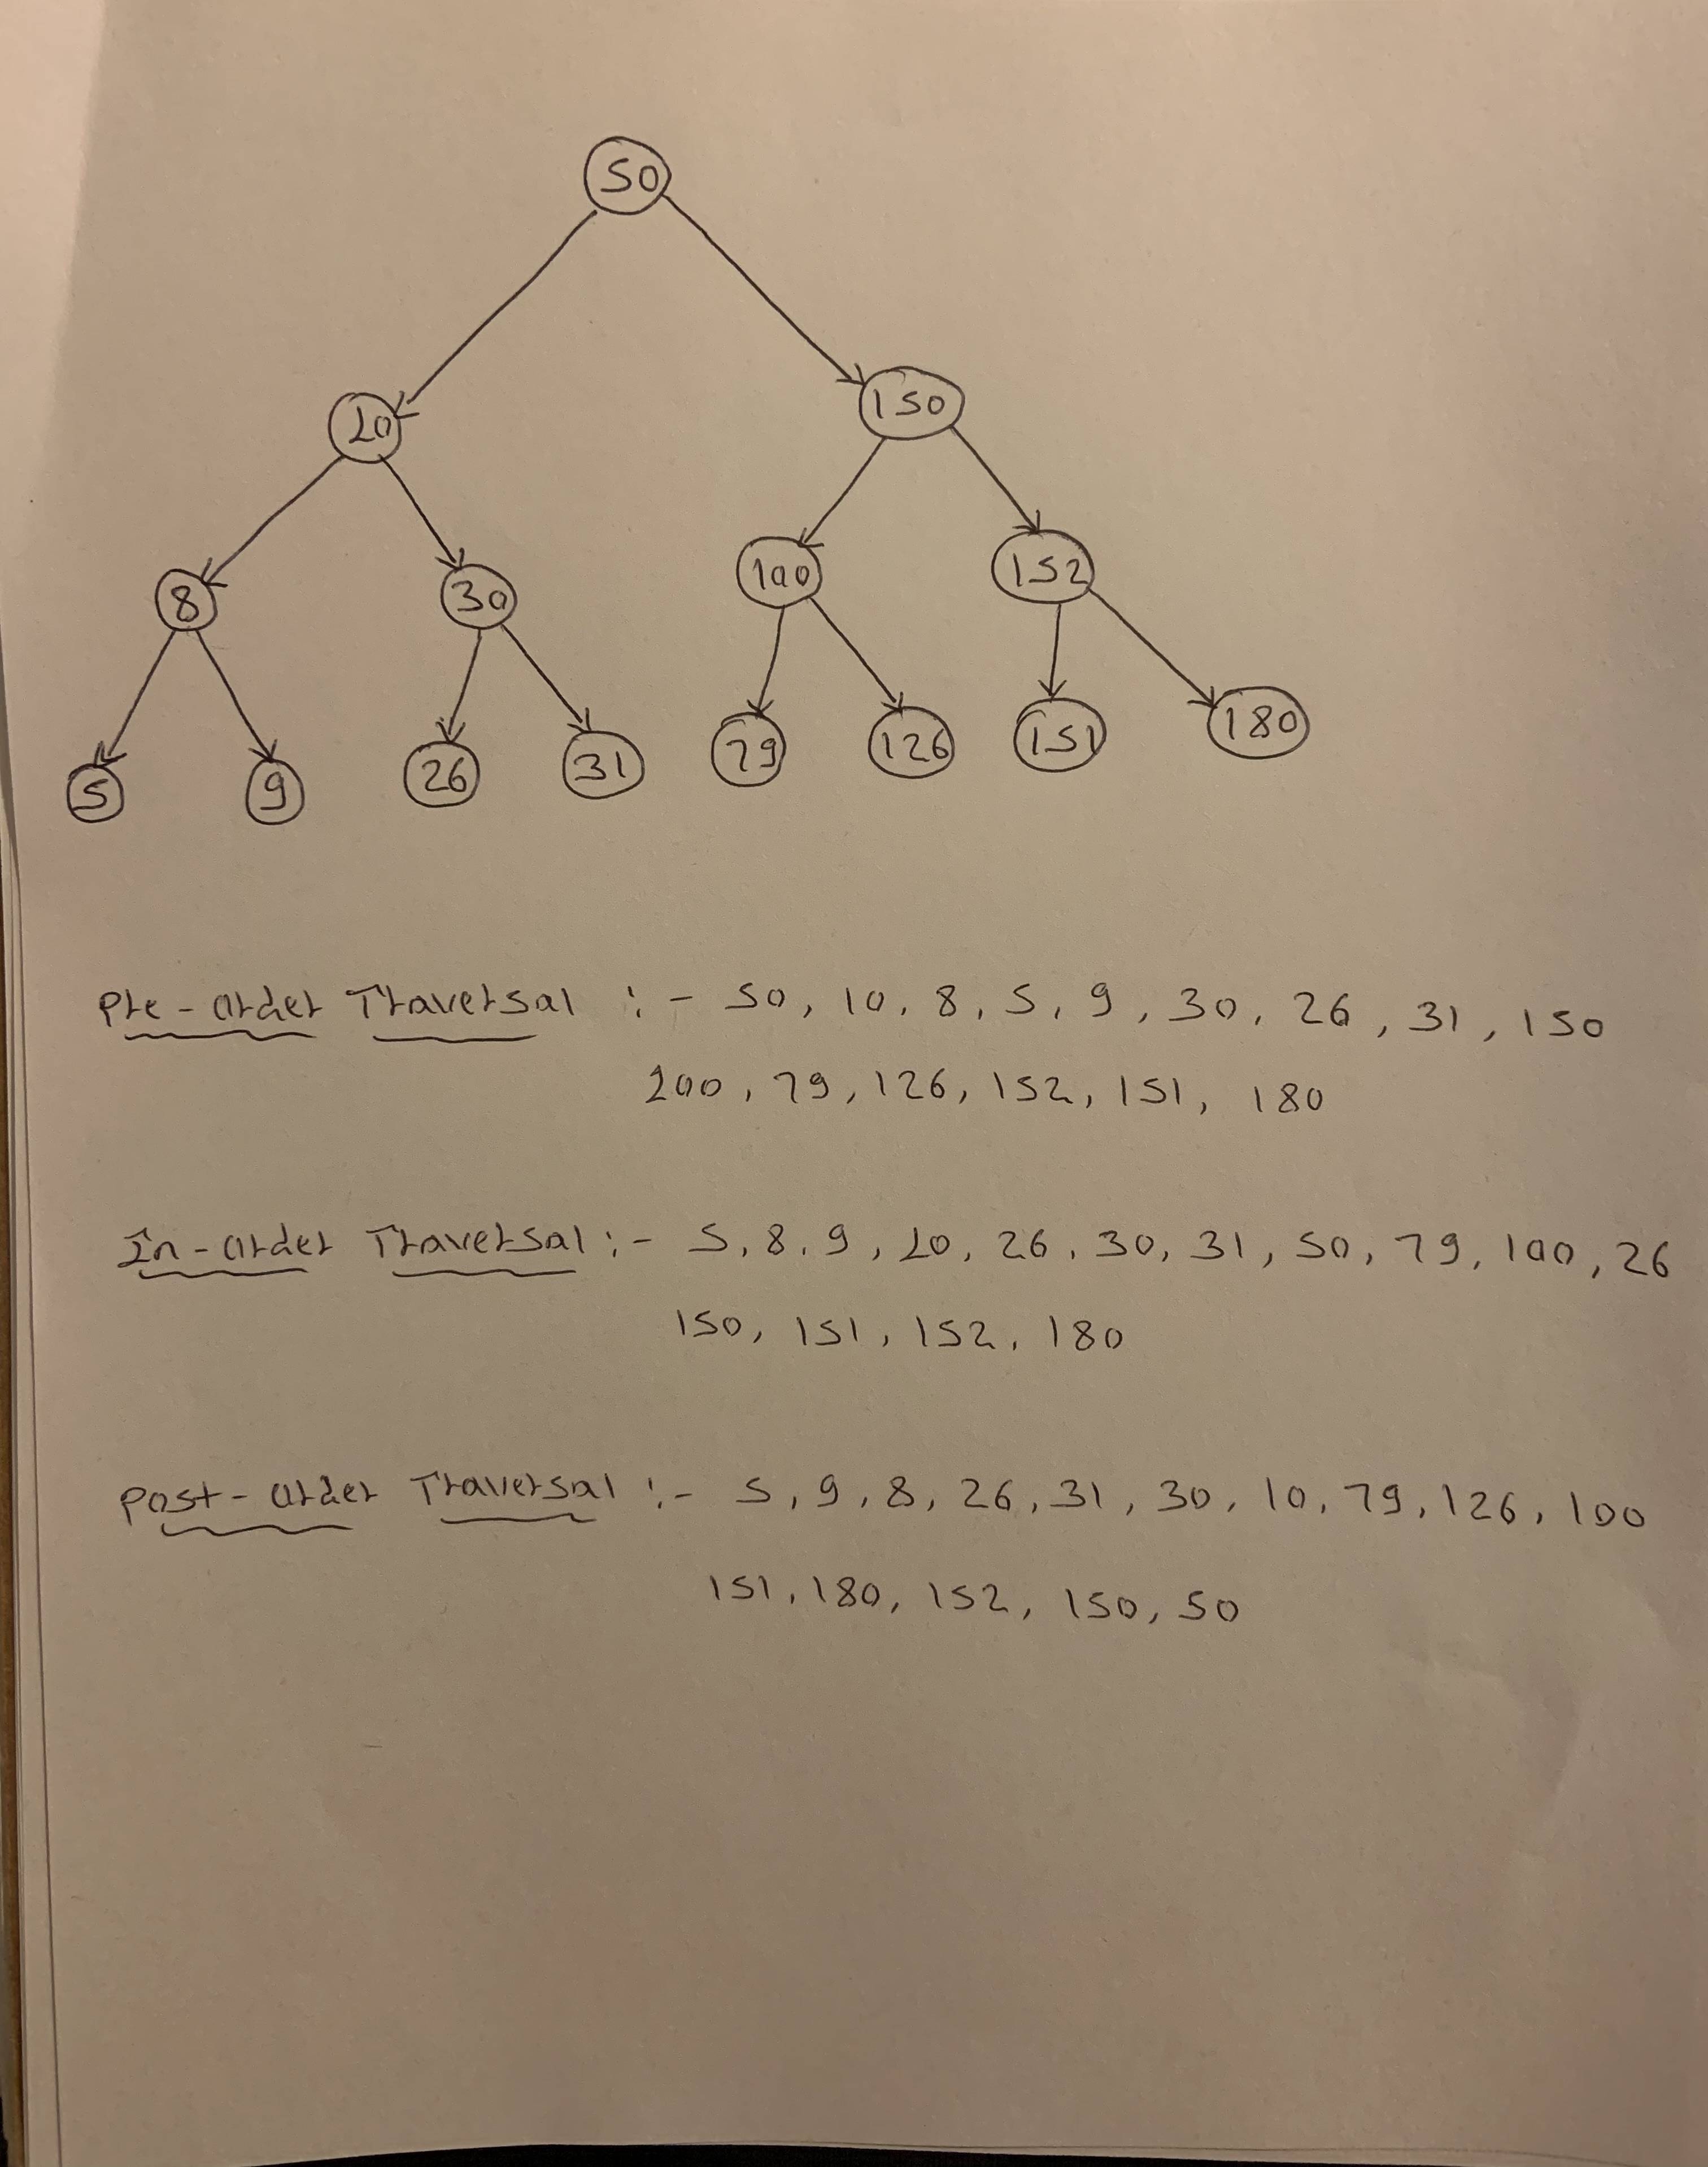 50
20 150
8 30 100 152
5 9 26 31 79 126 151 180
Pre-order Traversal :- 50, 10, 8, 5, 9, 30, 26, 31, 150
200, 79, 126, 152, 151, 180
In-order Traversal :- 5, 8, 9, 10, 26, 30, 31, 50, 79, 100, 26
150, 151, 152, 180
Post-order Traversal :- 5, 9, 8, 26, 31, 30, 10, 79, 126, 100
151, 180, 152, 150, 50